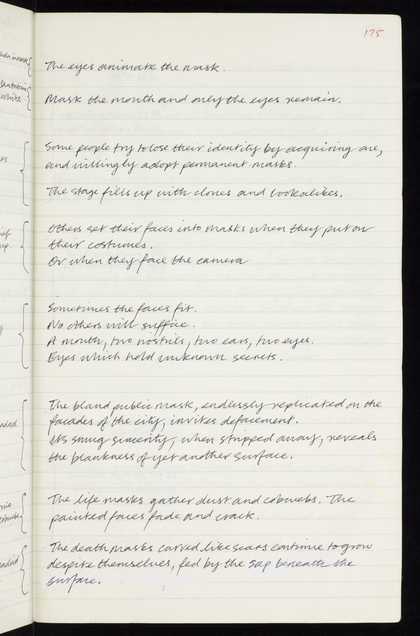 175
The eyes animate the mask.
Mask the mouth and only the eyes remain.
Some people try to lose their identity by acquiring one,
and willingly adopt permanent masks.
The stage fills up with clones and lookalikes.
Others set their faces into masks when they put on
their costumes.
Or when they face the camera
Sometimes the faces fit.
No others will suffice.
A mouth, two nostrils, two ears, two eyes.
Eyes which hold unknown secrets.
The bland public mask, endlessly replicated on the
facades of the city, invites defacement.
Its smug sincerity, when stripped away, reveals
the blankness of yet another surface.
The life masks gather dust and cobwebs. The
painted faces fade and crack.
The death masks carved like scars continue to grow
despite themselves, fed by the sap beneath the
surface.